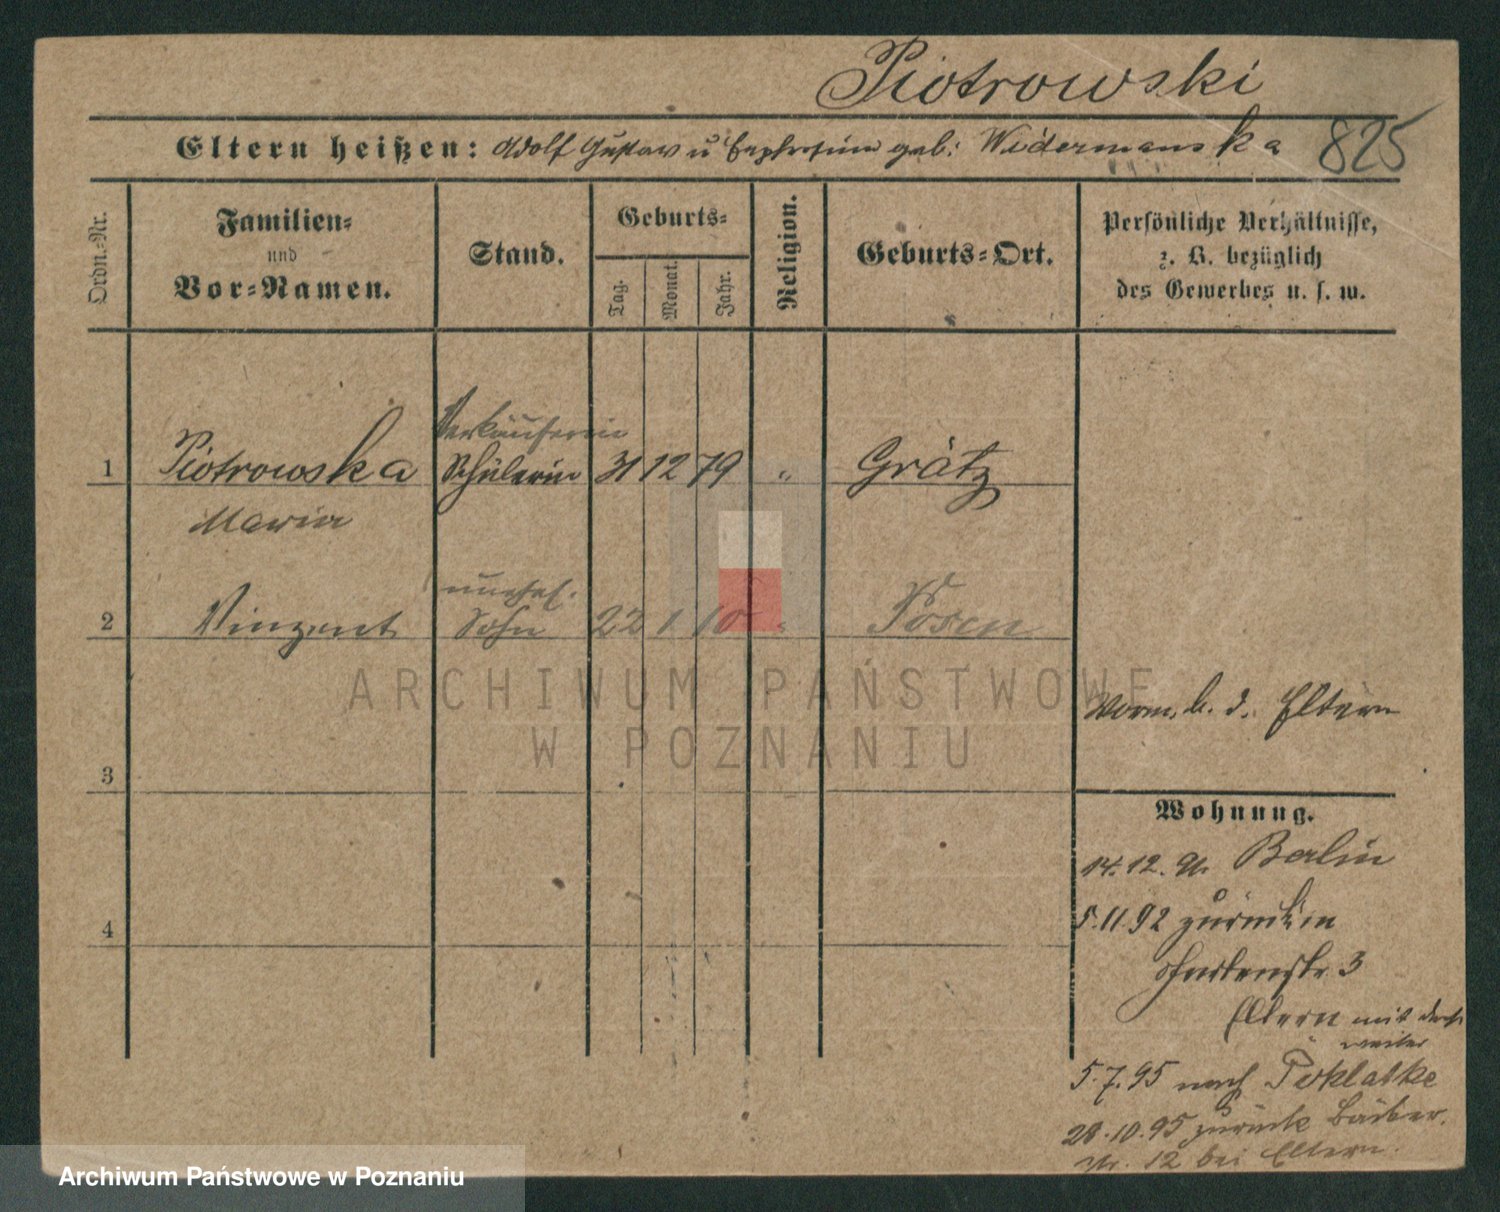 Piotrowski
Eltern heißen: Adolf Gustav u Euphrosine geb: Widermanska 825
Ordn.-Nr.
Familien-
und
Vor-Namen.
Stand.
Geburts-
Tag.
Monat.
Jahr.
Religion.
Geburts-Ort.
Persönliche Verhältnisse,
z. B. bezüglich
des Gewerbes u. s. w.
Verkäuferin
1 Piotrowska Schülerin 31 12 79 " Grätz
Maria
unehel.
2 Vinzent Sohn 22 1 10 " Posen
Vorm. b. d. Eltern
3
Wohnung.
14.12. 91. Berlin
5.11.92 zurück in
3
4
Eltern mit
weiter
5.7.95 nach
28.10.95 zurück
Nr. 12 bei Eltern.
ARCHIWUM PAŃSTWOWE
W POZNANIU
Archiwum Państwowe w Poznaniu